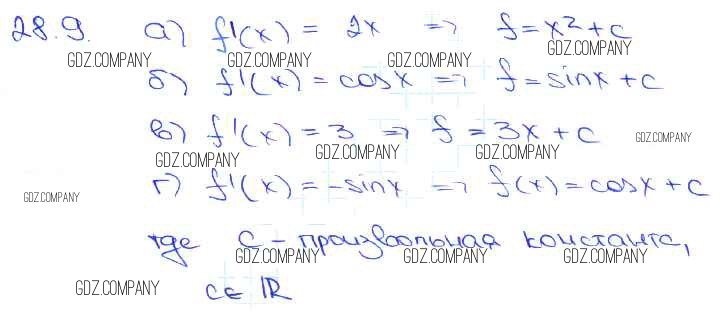 28.9. а) f'(x) = 2x => f = x² + c
GDZ.COMPANY GDZ.COMPANY GDZ.COMPANY
б) f'(x) = cosx => f = sinx + c
в) f'(x) = 3 => f = 3x + c GDZ.COMPANY
GDZ.COMPANY GDZ.COMPANY GDZ.COMPANY
г) f'(x) = -sinx => f(x) = cosx + c
GDZ.COMPANY
где c - произвольная константа,
GDZ.COMPANY GDZ.COMPANY GDZ.COMPANY
GDZ.COMPANY c ∈ ℝ